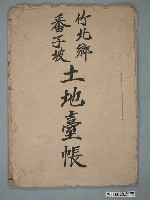 竹北鄉
番子坡
土地臺帳